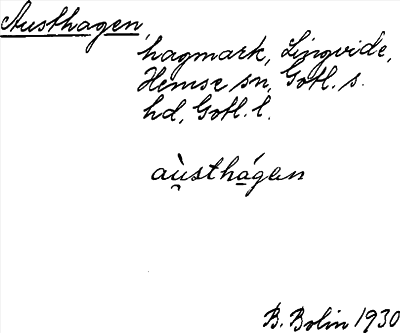 Austhagen,
hagmark, Lingvide,
Hemse sn, Gotl. s.
hd, Gotl. l.
aù̯sthá̲gen
B. Bolin 1930